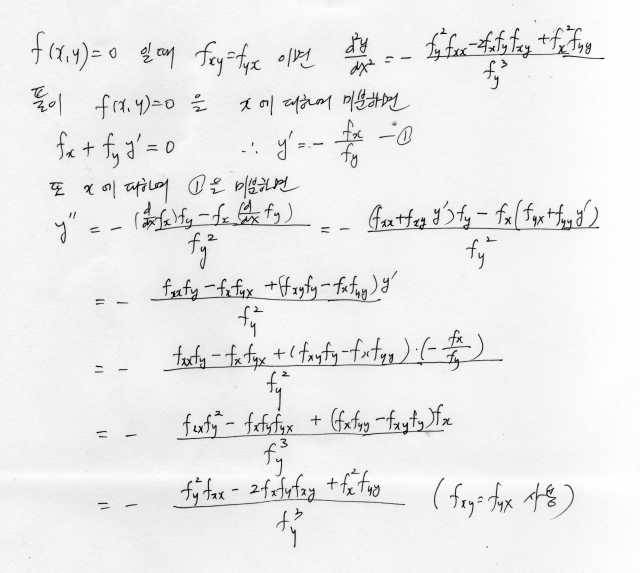 f(x,y)=0 일때 f_xy=f_yx 이면 d²y/dx² = - (f_y²f_xx-2f_xf_yf_xy+f_x²f_yy)/f_y³
풀이 f(x,y)=0 을 x에 대하여 미분하면
f_x + f_y y' = 0 ∴ y' = - f_x/f_y -①
또 x에 대하여 ①을 미분하면
y'' = - ((d/dx f_x)f_y - f_x(d/dx f_y))/f_y² = - ((f_xx+f_xy y')f_y - f_x(f_yx+f_yy y'))/f_y²
= - (f_xxf_y - f_xf_yx + (f_xyf_y-f_xf_yy)y')/f_y²
= - (f_xxf_y - f_xf_yx + (f_xyf_y-f_xf_yy)·(-f_x/f_y))/f_y²
= - (f_xxf_y² - f_xf_yf_yx + (f_xf_yy-f_xyf_y)f_x)/f_y³
= - (f_y²f_xx - 2f_xf_yf_xy + f_x²f_yy)/f_y³ (f_xy=f_yx 사용)